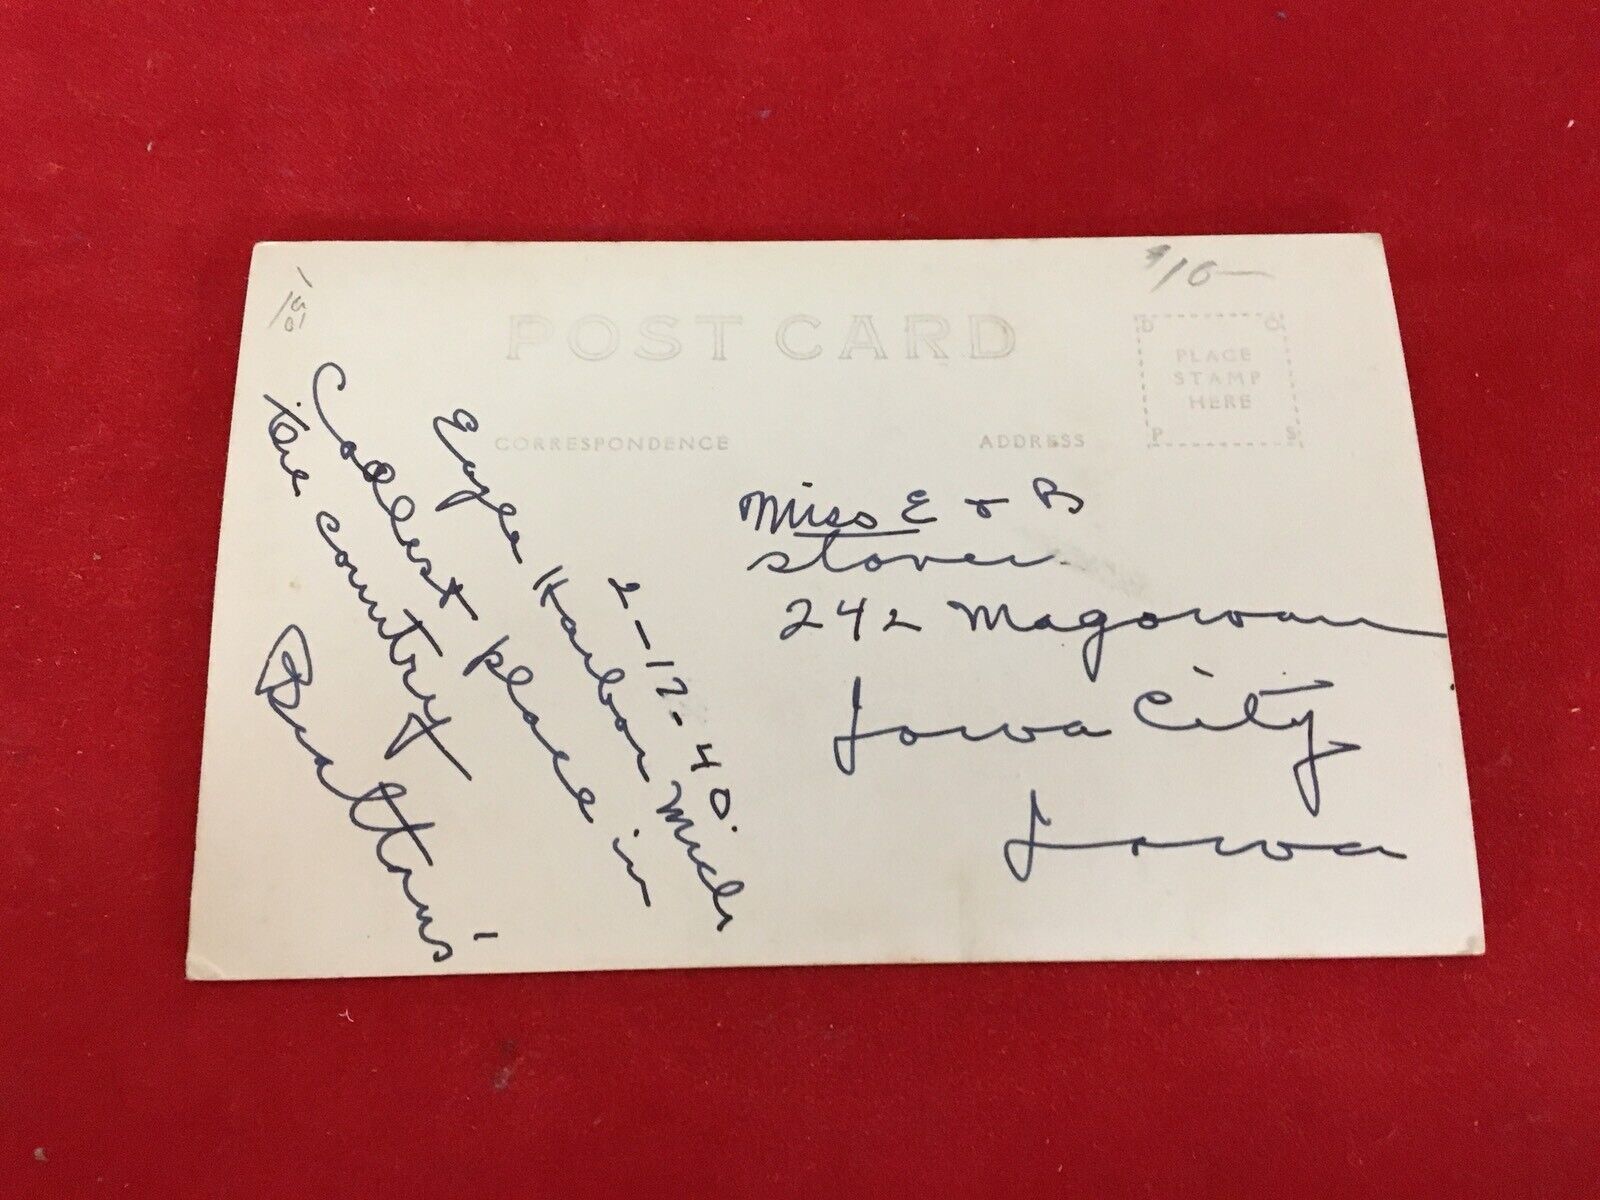 $10—
POST CARD
CORRESPONDENCE
ADDRESS
PLACE
STAMP
HERE
D O
P S
2-17-40.
Eagle Harbor Mich
Coolest place in
the country
Miss E & B
Stover
242 Magowan
Iowa City
Iowa